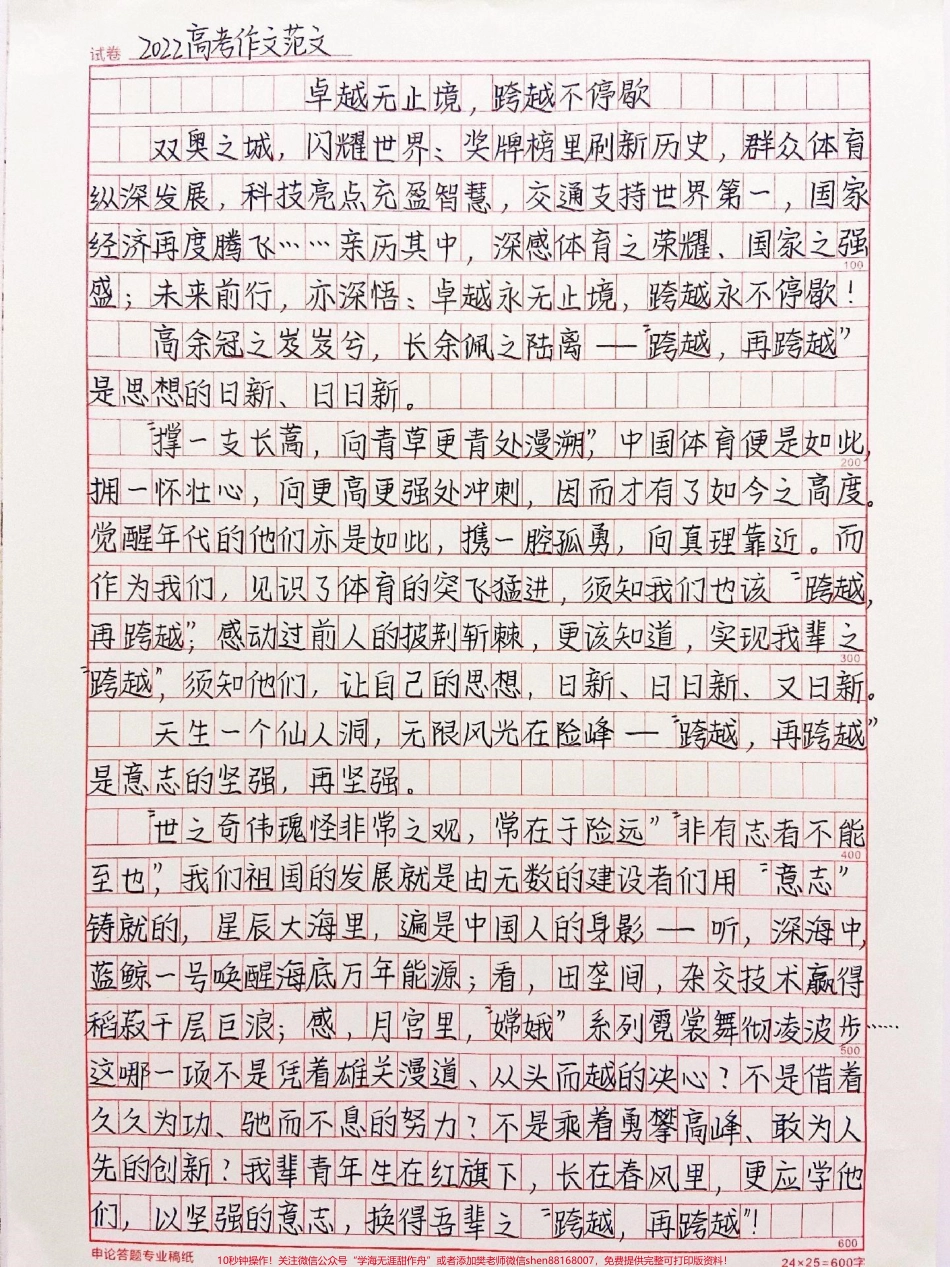 试卷 2022高考作文范文
卓越无止境，跨越不停歇
双奥之城，闪耀世界：奖牌榜里刷新历史，群众体育
纵深发展，科技亮点充盈智慧，交通支持世界第一，国家
经济再度腾飞……亲历其中，深感体育之荣耀、国家之强
100
盛；未来前行，亦深悟：卓越永无止境，跨越永不停歇！
高余冠之岌岌兮，长余佩之陆离—“跨越，再跨越”
是思想的日新、日日新。
“撑一支长蒿，向青草更青处漫溯”，中国体育便是如此，
200
拥一怀壮心，向更高更强处冲刺，因而才有了如今之高度。
觉醒年代的他们亦是如此，携一腔孤勇，向真理靠近。而
作为我们，见识了体育的突飞猛进，须知我们也该“跨越，
再跨越”；感动过前人的披荆斩棘，更该知道，实现我辈之
300
“跨越”，须知他们，让自己的思想，日新、日日新、又日新。
天生一个仙人洞，无限风光在险峰—“跨越，再跨越”
是意志的坚强，再坚强。
“世之奇伟瑰怪非常之观，常在于险远”“非有志者不能
400
至也”，我们祖国的发展就是由无数的建设者们用“意志”
铸就的，星辰大海里，遍是中国人的身影—听，深海中，
蓝鲸一号唤醒海底万年能源；看，田垄间，杂交技术赢得
稻菽千层巨浪；感，月宫里，“嫦娥”系列霓裳舞彻凌波步……
500
这哪一项不是凭着雄关漫道、从头而越的决心？不是借着
久久为功、驰而不息的努力？不是乘着勇攀高峰、敢为人
先的创新？我辈青年生在红旗下，长在春风里，更应学他
们，以坚强的意志，换得吾辈之“跨越，再跨越”！
600
申论答题专业稿纸 10秒钟操作！关注微信公众号“学海无涯甜作舟”或者添加樊老师微信shen88168007，免费提供完整可打印版资料！ 24×25=600字